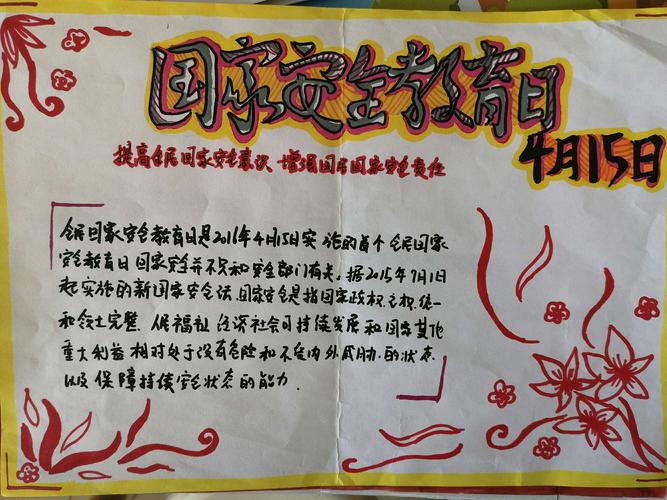 国家安全教育日
4月15日
提高全民国家安全意识 增强国民国家安全责任
全民国家安全教育日是2016年4月15日实施的首个全民国家
安全教育日国家安全并不只和安全部门有关。据2015年7月1日
起实施的新国家安全法,国家安全是指国家政权、主权、统一
和领土完整、人民福祉、经济社会可持续发展和国家其他
重大利益相对处于没有危险和不受内外威胁的状态
以及保障持续安全状态的能力.